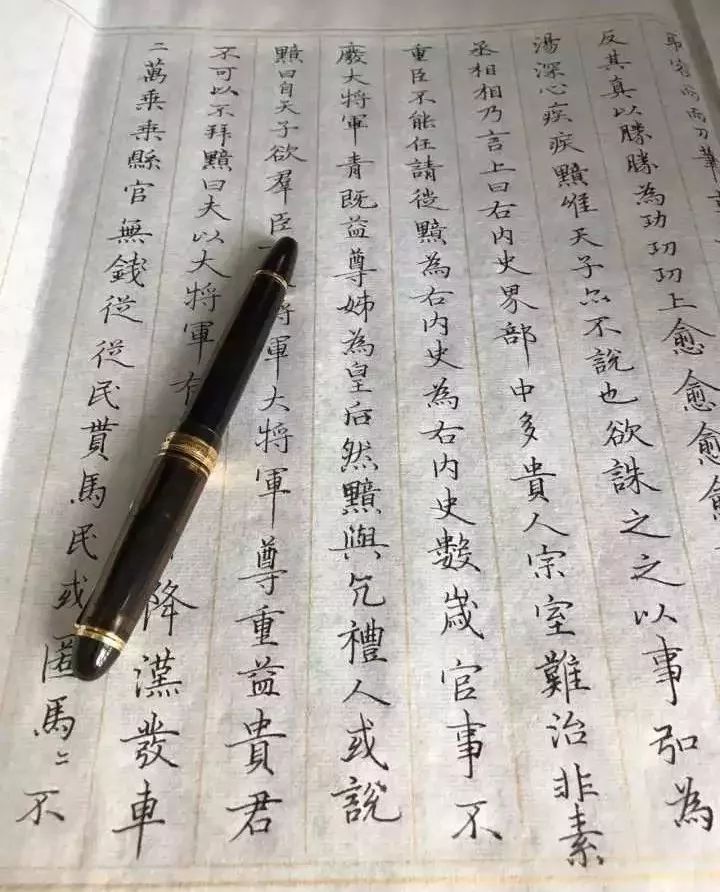 反其真以勝勝為功功功上愈愈愈
湯深心疾疾黯唯天子亦不說也欲誅之之以事弘為
丞相相乃言上曰右內史界部中多貴人宗室難治非素
重臣不能任請從黯為右內史為右內史數歲官事不
廢大將軍青既益尊姊為皇后然黯與亢禮人或說
黯曰自天子欲羣臣將軍大將軍尊重益貴君
不可以不拜黯曰夫以大將軍有降漢發車
二萬乘乘縣官無錢從從民貰馬民或匿馬〻不